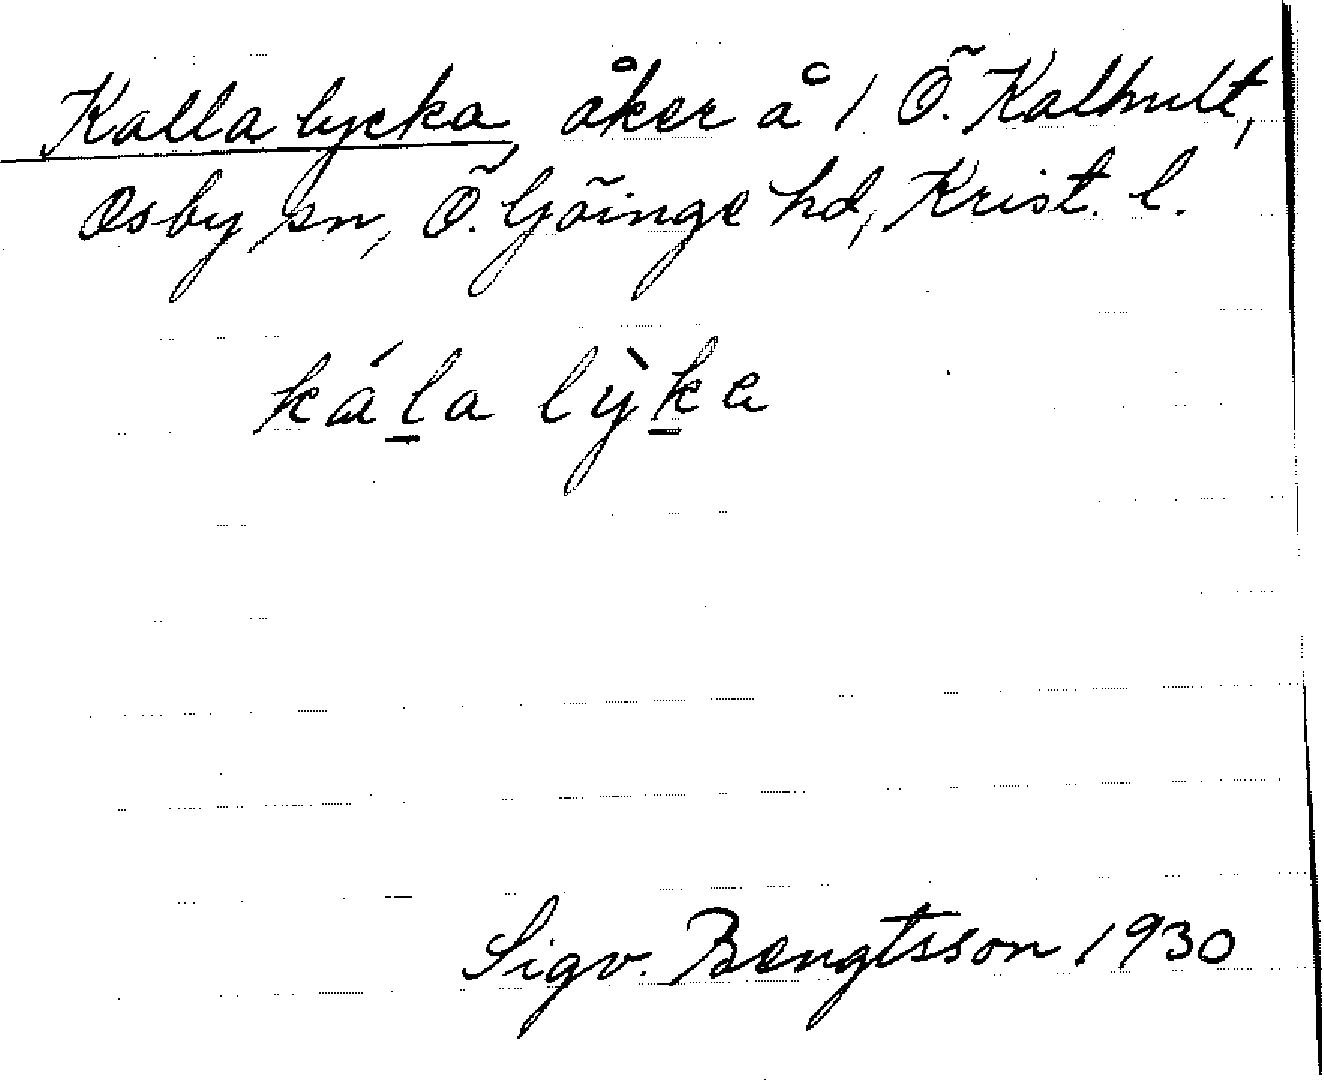 Kalla lycka, åker å 1 Ö. Kalhult,
Osby sn, Ö. Göinge hd, Krist. l.
ká̀la lỳka
Sigv. Bengtsson 1930